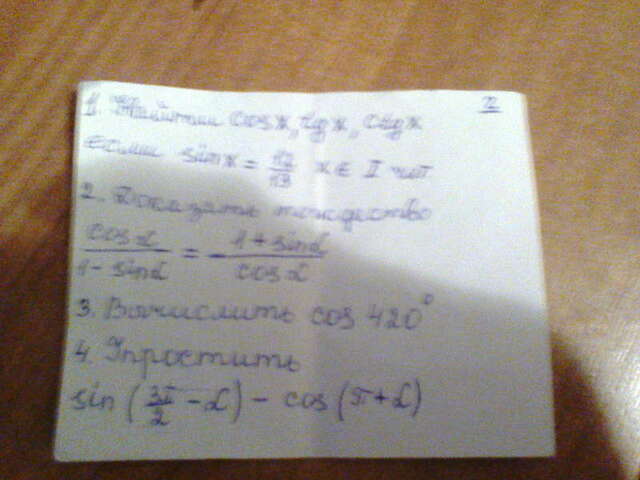 12
1. Найти cos x, tg x, ctg x
если sin x = 12/13 x ∈ II чет
2. Доказать тождество
cos α / 1 - sin α = 1 + sin α / cos α
3. Вычислить cos 420°
4. Упростить
sin (3π/2 - α) - cos (π + α)